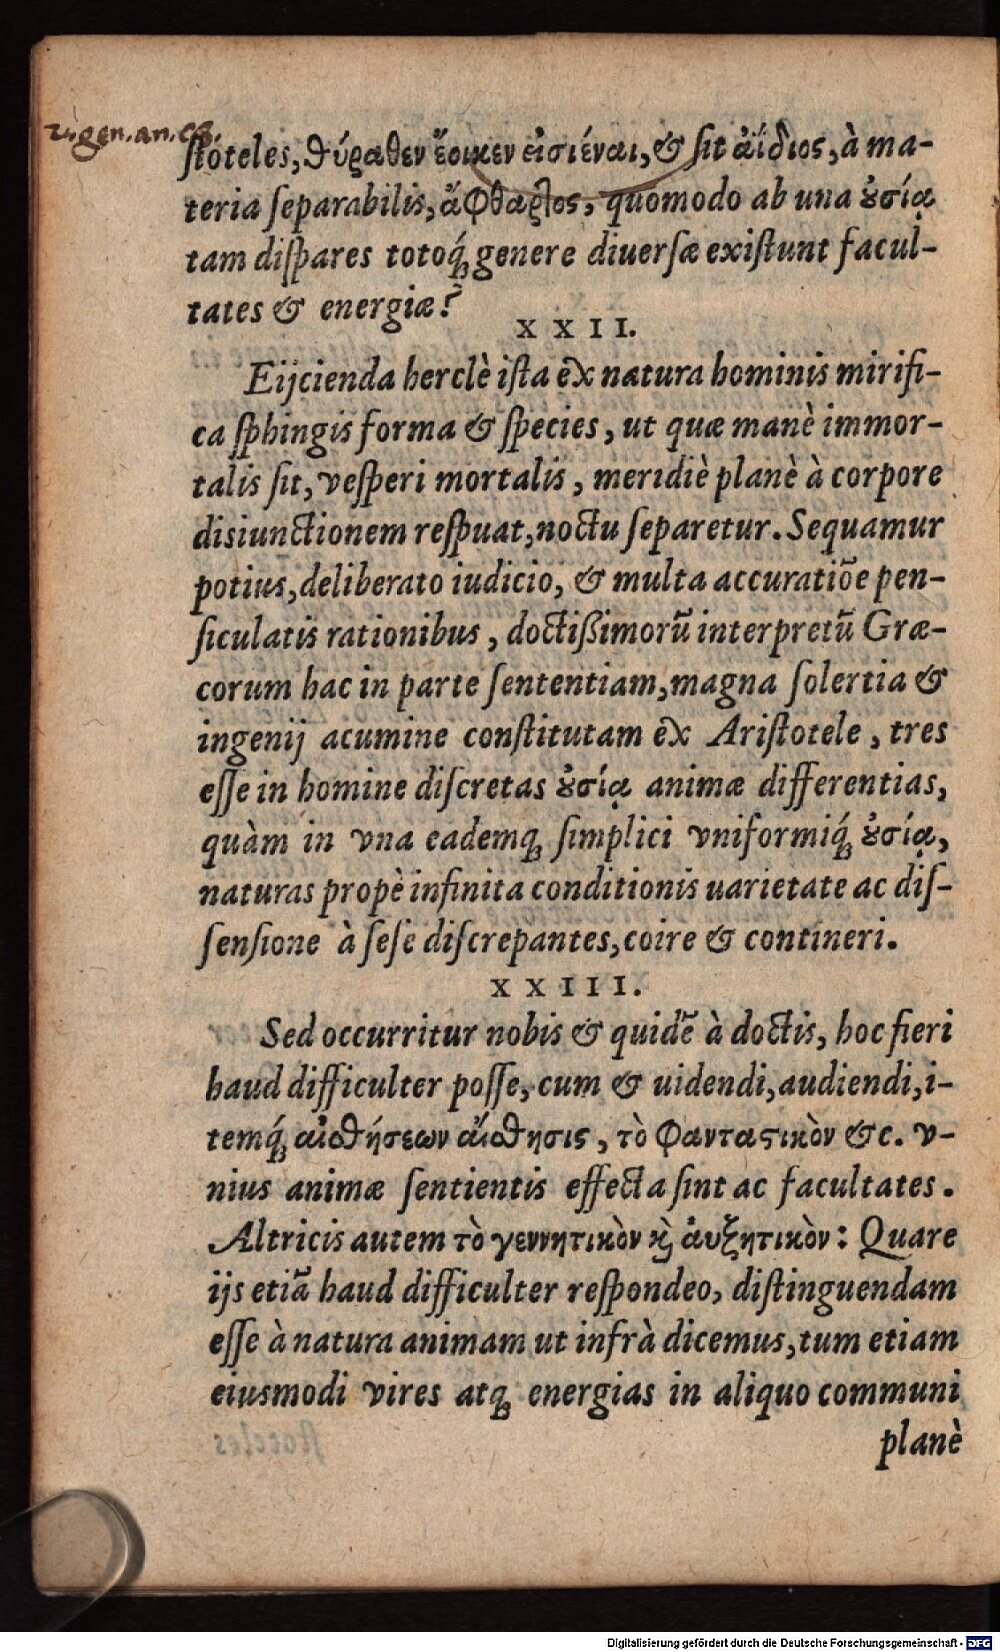 2. gen. an. c3.
stoteles, θύραθεν ἔοικεν εἰσιέναι, & sit ἀΐδιος, à ma-
teria separabilis, ἄφθαρτος, quomodo ab una ȣσίᾳ
tam dispares totoq́ꝫ genere diuersæ existunt facul-
tates & energiæ?
XXII.
Eijcienda herclè ista ex natura hominis mirifi-
ca sphingis forma & species, ut quæ manè immor-
talis sit, vesperi mortalis, meridiè planè à corpore
disiunctionem respuat, noctu separetur. Sequamur
potius, deliberato iudicio, & multa accuratiōe pen-
siculatis rationibus, doctißimorū interpretū Græ-
corum hac in parte sententiam, magna solertia &
ingenij acumine constitutam ex Aristotele, tres
esse in homine discretas ȣσίᾳ animæ differentias,
quàm in vna eademqꝫ simplici vniformiq́ꝫ ȣσίᾳ,
naturas propè infinita conditionis uarietate ac dis-
sensione à sese discrepantes, coire & contineri.
XXIII.
Sed occurritur nobis & quidē à doctis, hoc fieri
haud difficulter posse, cum & uidendi, audiendi, i-
temq́ꝫ αἰσθήσεων αἴσθησις, τὸ φανταστικὸν &c. v-
nius animæ sentientis effecta sint ac facultates.
Altricis autem τὸ γεννητικὸν ϗ̀ ἀυξητικὸν: Quare
ijs etiā haud difficulter respondeo, distinguendam
esse à natura animam ut infrà dicemus, tum etiam
eiusmodi vires atqꝫ energias in aliquo communi
planè
Digitalisierung gefördert durch die Deutsche Forschungsgemeinschaft - DFG